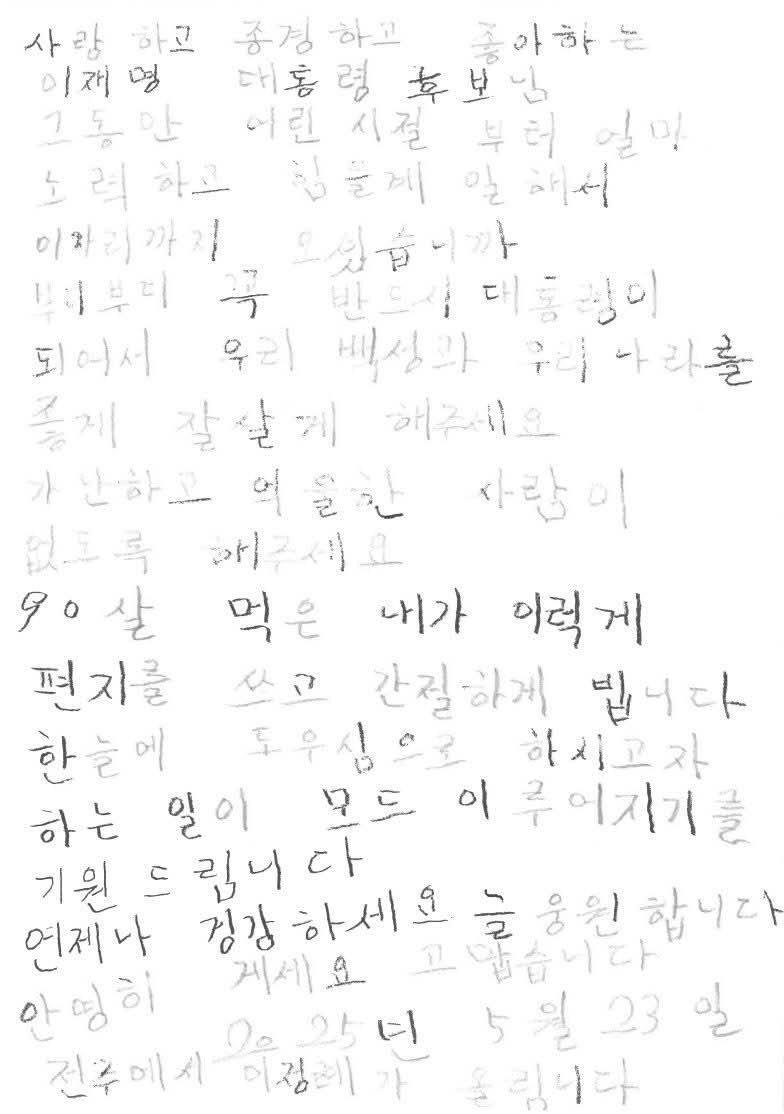 사랑 하고 종경하고 좋아하는
이재명 대통령 후보님
그동안 어린 시절 부터 얼마
노력하고 힘들게 일해서
이자리까지 오셨습니까
부디부디 꼭 반드시 대통령이
되어서 우리 백성과 우리나라를
좋게 잘살게 해주세요
가난하고 억울한 사람이
없도록 해주세요
90살 먹은 내가 이렇게
편지를 쓰고 간절하게 빕니다
한늘에 도우심으로 하시고자
하는 일이 모드 이루어지기를
기원드립니다
언제나 겅강하세요 늘 웅원합니다
안띵히 게세요 고맙습니다
2025년 5월 23일
전주에서 이정례가 올림니다